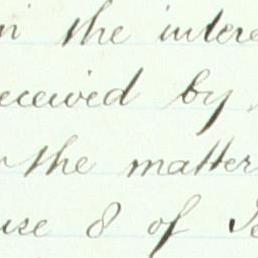 in the intere
eceived by
the matter
use 8 of Se